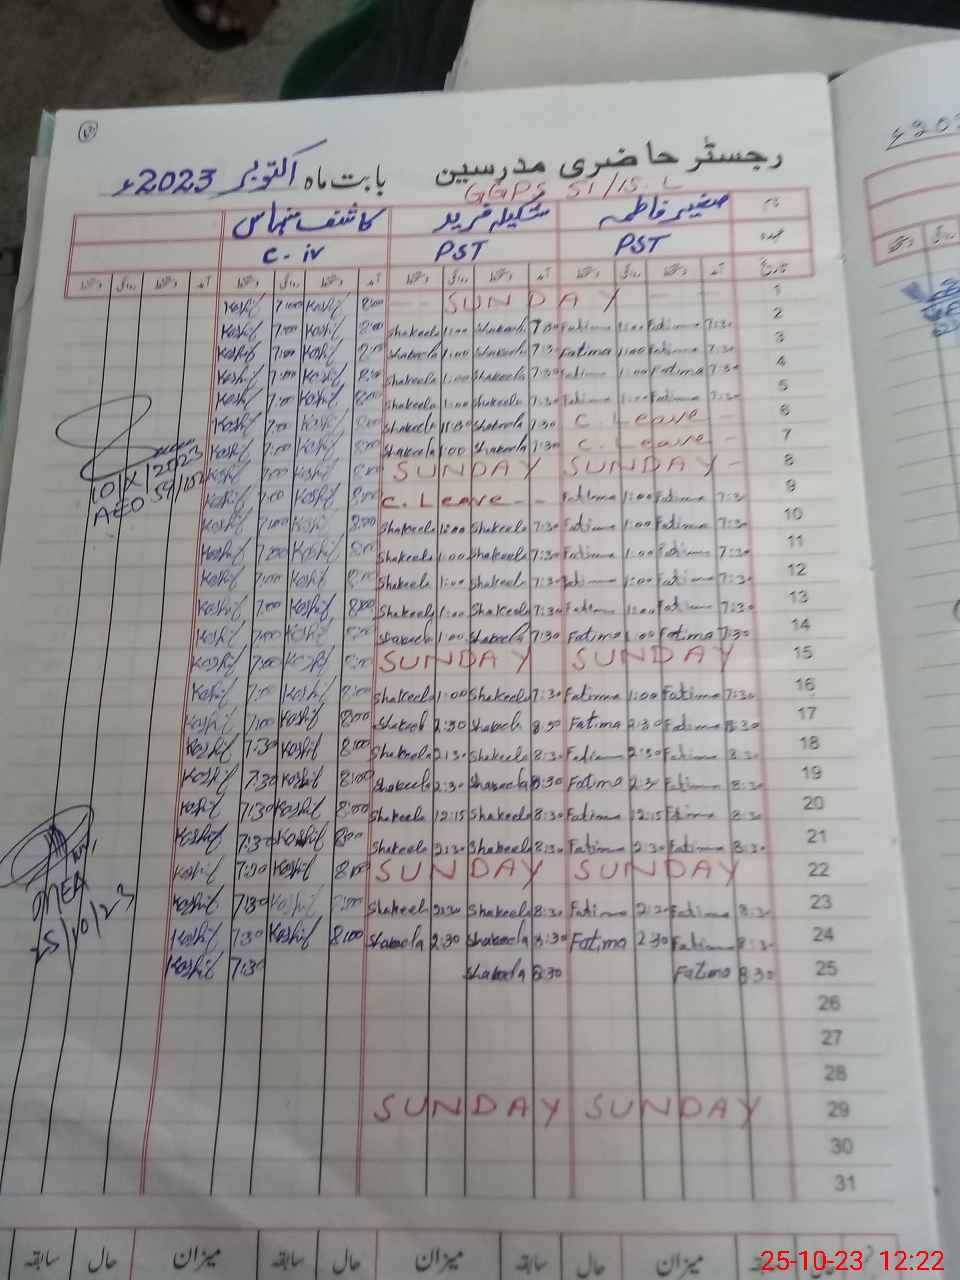 رجسٹر حاضری مدرسین بابت ماہ اکتوبر 2023ء
GGPS 51/15.L
نام صغیر فاطمہ شکیلہ فرید کاشف
عہدہ PST PST C. iv
تاریخ
1 SUNDAY Kashif 7:00 Kashif 8:00
2 7:30 Fatima 1:00 Fatima 7:30 Shakeela 1:00 Shakeela Kashif 7:00 Kashif 8:00
3 7:30 Fatima 1:00 Fatima 7:30 Shakeela 1:00 Shakeela Kashif 7:00 Kashif 8:00
4 7:30 Fatima 1:00 Fatima 7:30 Shakeela 1:00 Shakeela Kashif 7:00 Kashif 8:00
5 7:30 Fatima 1:00 Fatima 7:30 Shakeela 1:00 Shakeela Kashif 7:00 Kashif 8:00
6 C. Leave - 7:30 Shakeela 11:30 Shakeela Kashif 7:00 Kashif 8:00
7 C. Leave - 7:30 Shakeela 1:00 Shakeela Kashif 7:00 Kashif 8:00
8 SUNDAY - SUNDAY Kashif 7:00 Kashif 8:00
9 Fatima 1:00 Fatima 7:30 C. Leave - - Kashif 7:00 Kashif 8:00
10 Fatima 1:00 Fatima 7:30 Shakeela 1:00 Shakeela 7:30 Kashif 7:00 Kashif 8:00
11 Fatima 1:00 Fatima 7:30 Shakeela 1:00 Shakeela 7:30 Kashif 7:00 Kashif 8:00
12 Fatima 1:00 Fatima 7:30 Shakeela 1:00 Shakeela 7:30 Kashif 7:00 Kashif 8:00
13 Fatima 1:00 Fatima 7:30 Shakeela 1:00 Shakeela 7:30 Kashif 7:00 Kashif 8:00
14 Fatima 1:00 Fatima 7:30 Shakeela 1:00 Shakeela 7:30 Kashif 7:00 Kashif 8:00
15 SUNDAY SUNDAY Kashif 7:00 Kashif 8:00
16 Fatima 1:00 Fatima 7:30 Shakeela 1:00 Shakeela 7:30 Kashif 7:00 Kashif 8:00
17 Fatima 2:30 Fatima 8:30 Shakeela 2:30 Shakeela 8:30 Kashif 7:00 Kashif 8:00
18 Fatima 2:30 Fatima 8:30 Shakeela 2:30 Shakeela 8:30 Kashif 7:30 Kashif 8:00
19 Fatima 2:30 Fatima 8:30 Shakeela 2:30 Shakeela 8:30 Kashif 7:30 Kashif 8:00
20 Fatima 12:15 Fatima 8:30 Shakeela 12:15 Shakeela 8:30 Kashif 7:30 Kashif 8:00
21 Fatima 2:30 Fatima 8:30 Shakeela 2:30 Shakeela 8:30 Kashif 7:30 Kashif 8:00
22 SUNDAY SUNDAY Kashif 7:30 Kashif 8:00
23 Fatima 2:30 Fatima 8:30 Shakeela 2:30 Shakeela 8:30 Kashif 7:30 Kashif 8:00
24 Fatima 2:30 Fatima 8:30 Shakeela 2:30 Shakeela 8:30 Kashif 7:30 Kashif 8:00
25 Fatima 8:30 Shakeela 8:30 Kashif 7:30
26
27
28
29 SUNDAY SUNDAY
30
31
10/X/2023
AEO
MEA
25/10/23
میزان حال سابقہ میزان حال سابقہ میزان حال سابقہ
25-10-23 12:22